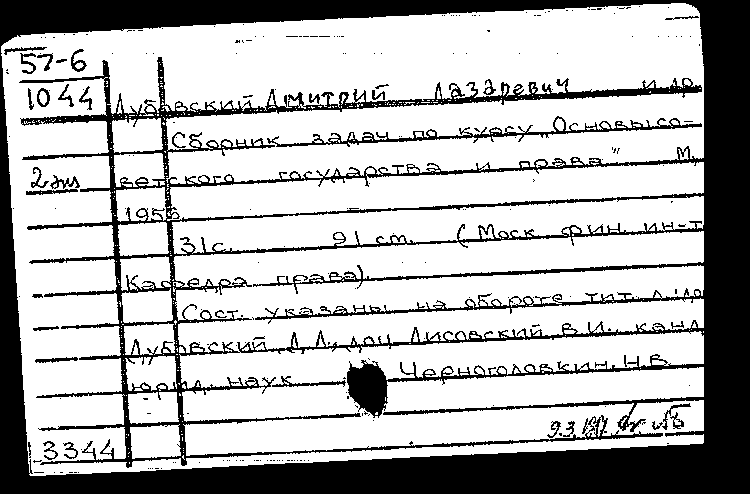 57-6
1044
Дубовский Дмитрий Лазаревич и др.
Сборник задач по курсу „Основы со-
2 экз
ветского государства и права" М,
1956.
31с. 21 см. (Моск фин ин-т
Кафедра права).
Сост. указаны на обороте тит л: до
Дубовский Д Л., доц Лисовский В.И.. канд
юрид. наук Черноголовкин. Н.В
3344
9.3.